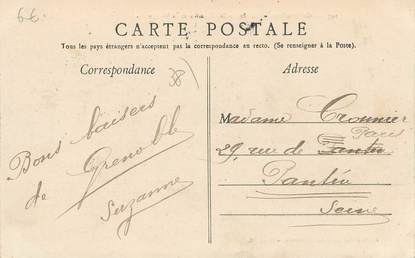 6€
CARTE POSTALE
Tous les pays étrangers n'acceptent pas la correspondance en recto. (Se renseigner à la Poste).
Correspondance
38
Adresse
Bons baisers
de Grenoble
Suzanne
Madame Crounier
Paris
29, rue de Pantin
Pantin
Seine